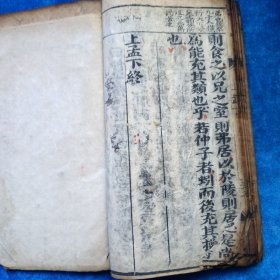 則食之以兄之室則弗居以於陵則居之是尚
爲能充其類也乎若仲子者蚓而後充其操者
也
上孟下終